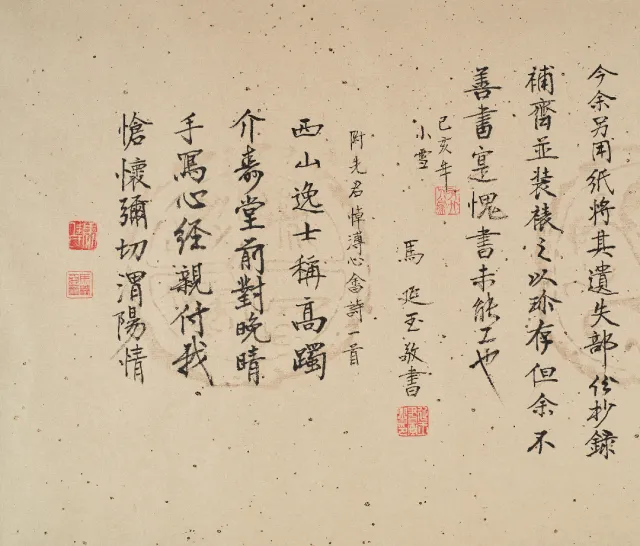 今余另用紙將其遺失部份抄錄
補齊並裝裱之以珍存但余不
善書寔愧書未能工也
己亥年
小雪
馬延玉敬書
附先君悼溥心畬詩一首
西山逸士稱高躅
介壽堂前對晚晴
手寫心經親付我
愴懷彌切渭陽情